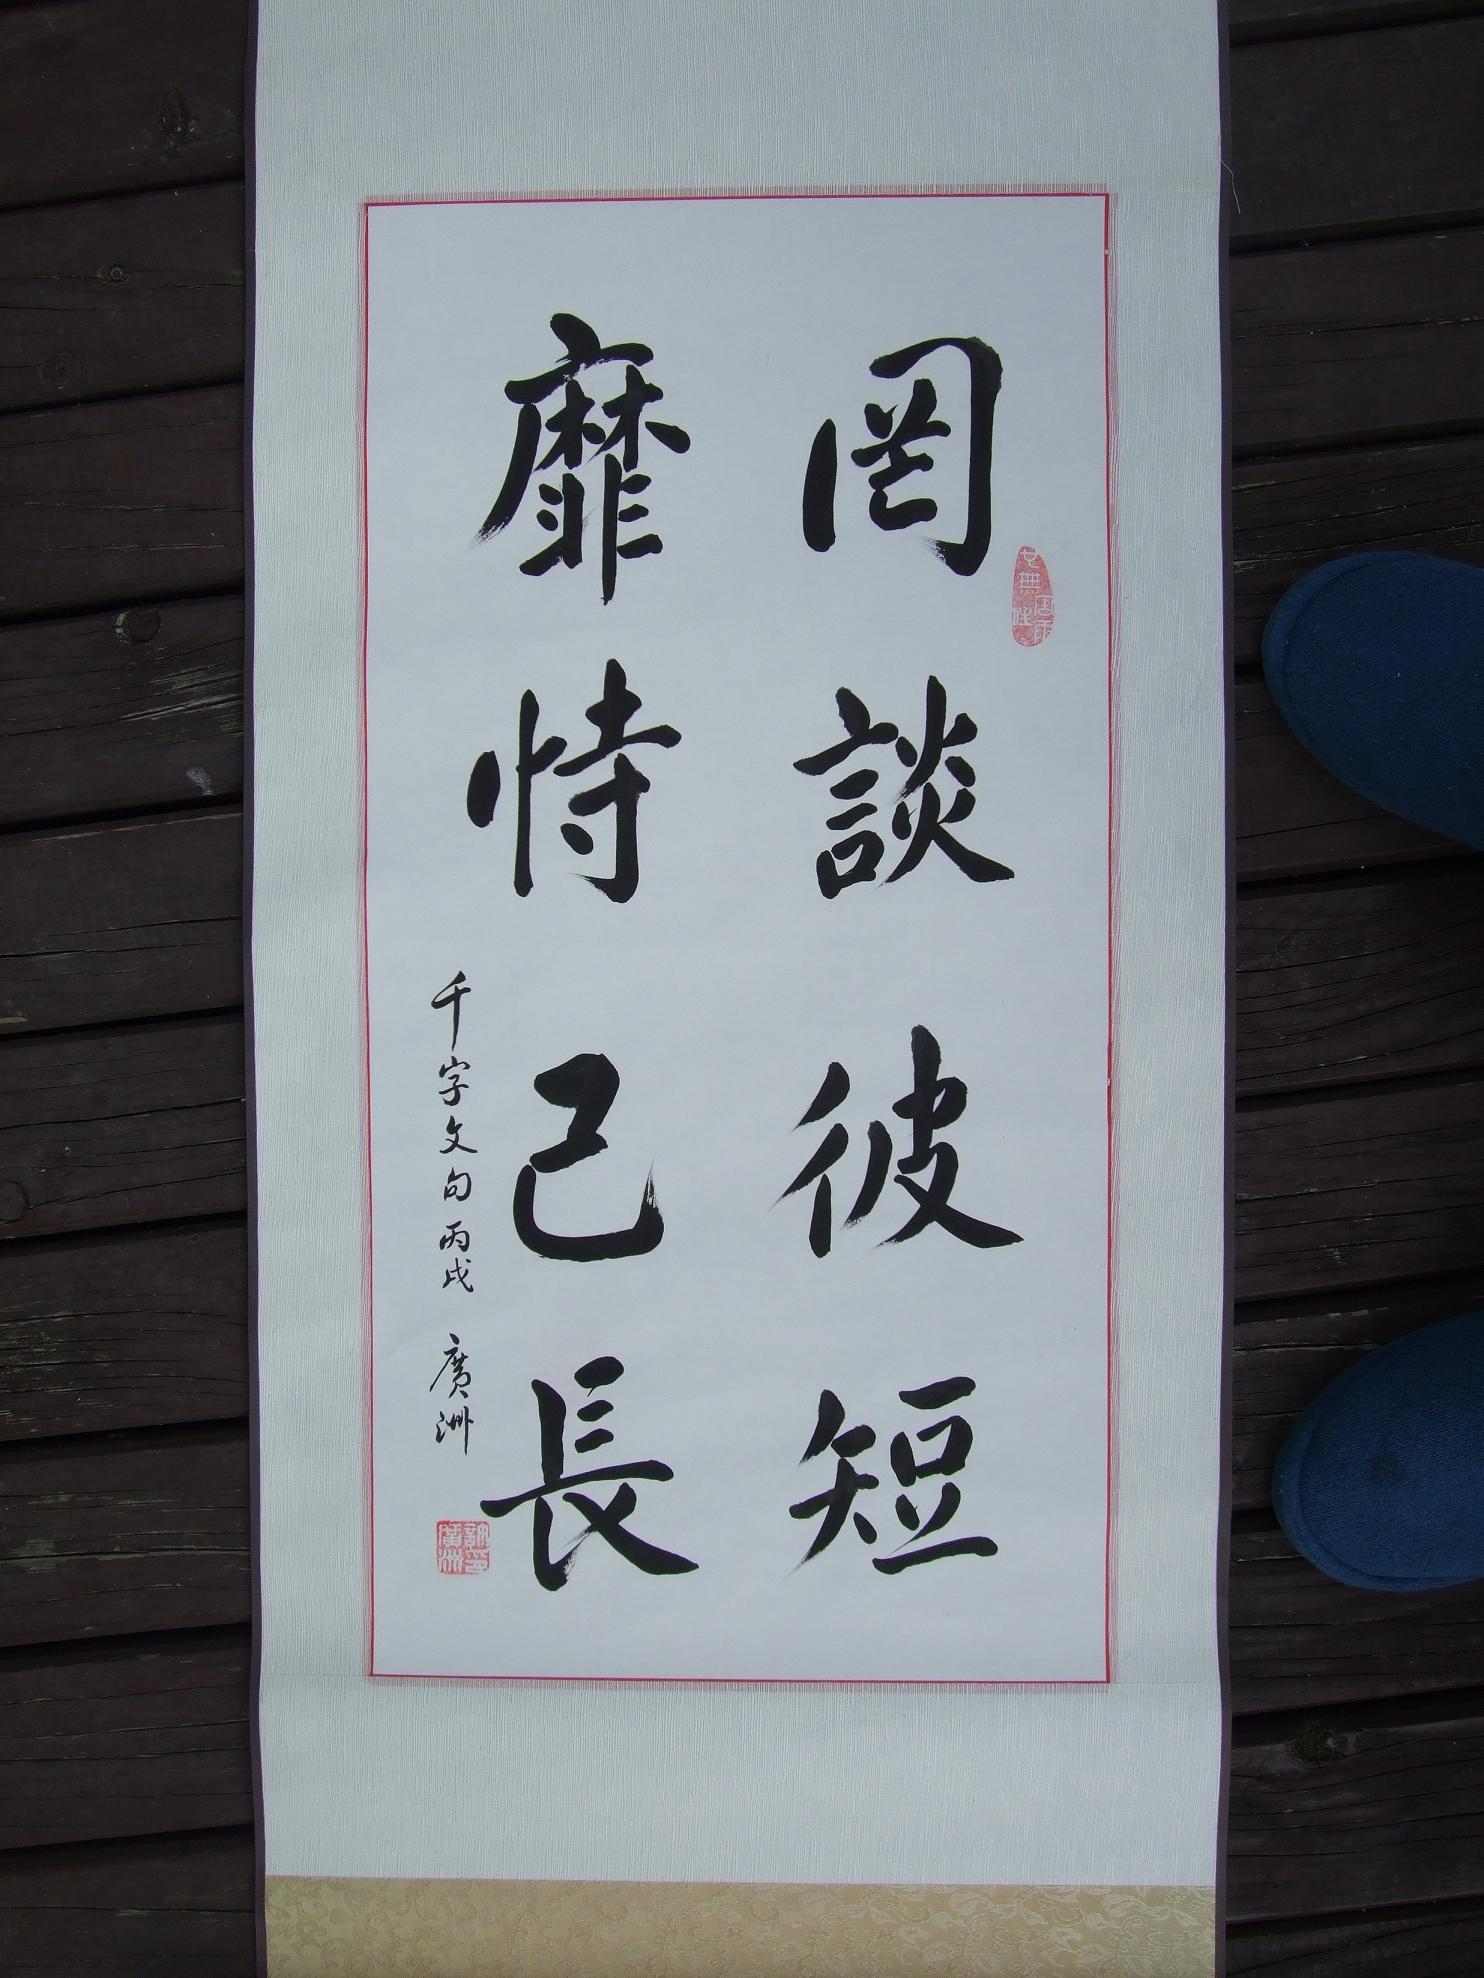 罔談彼短
靡恃己長
千字文句 丙戌 廣洲